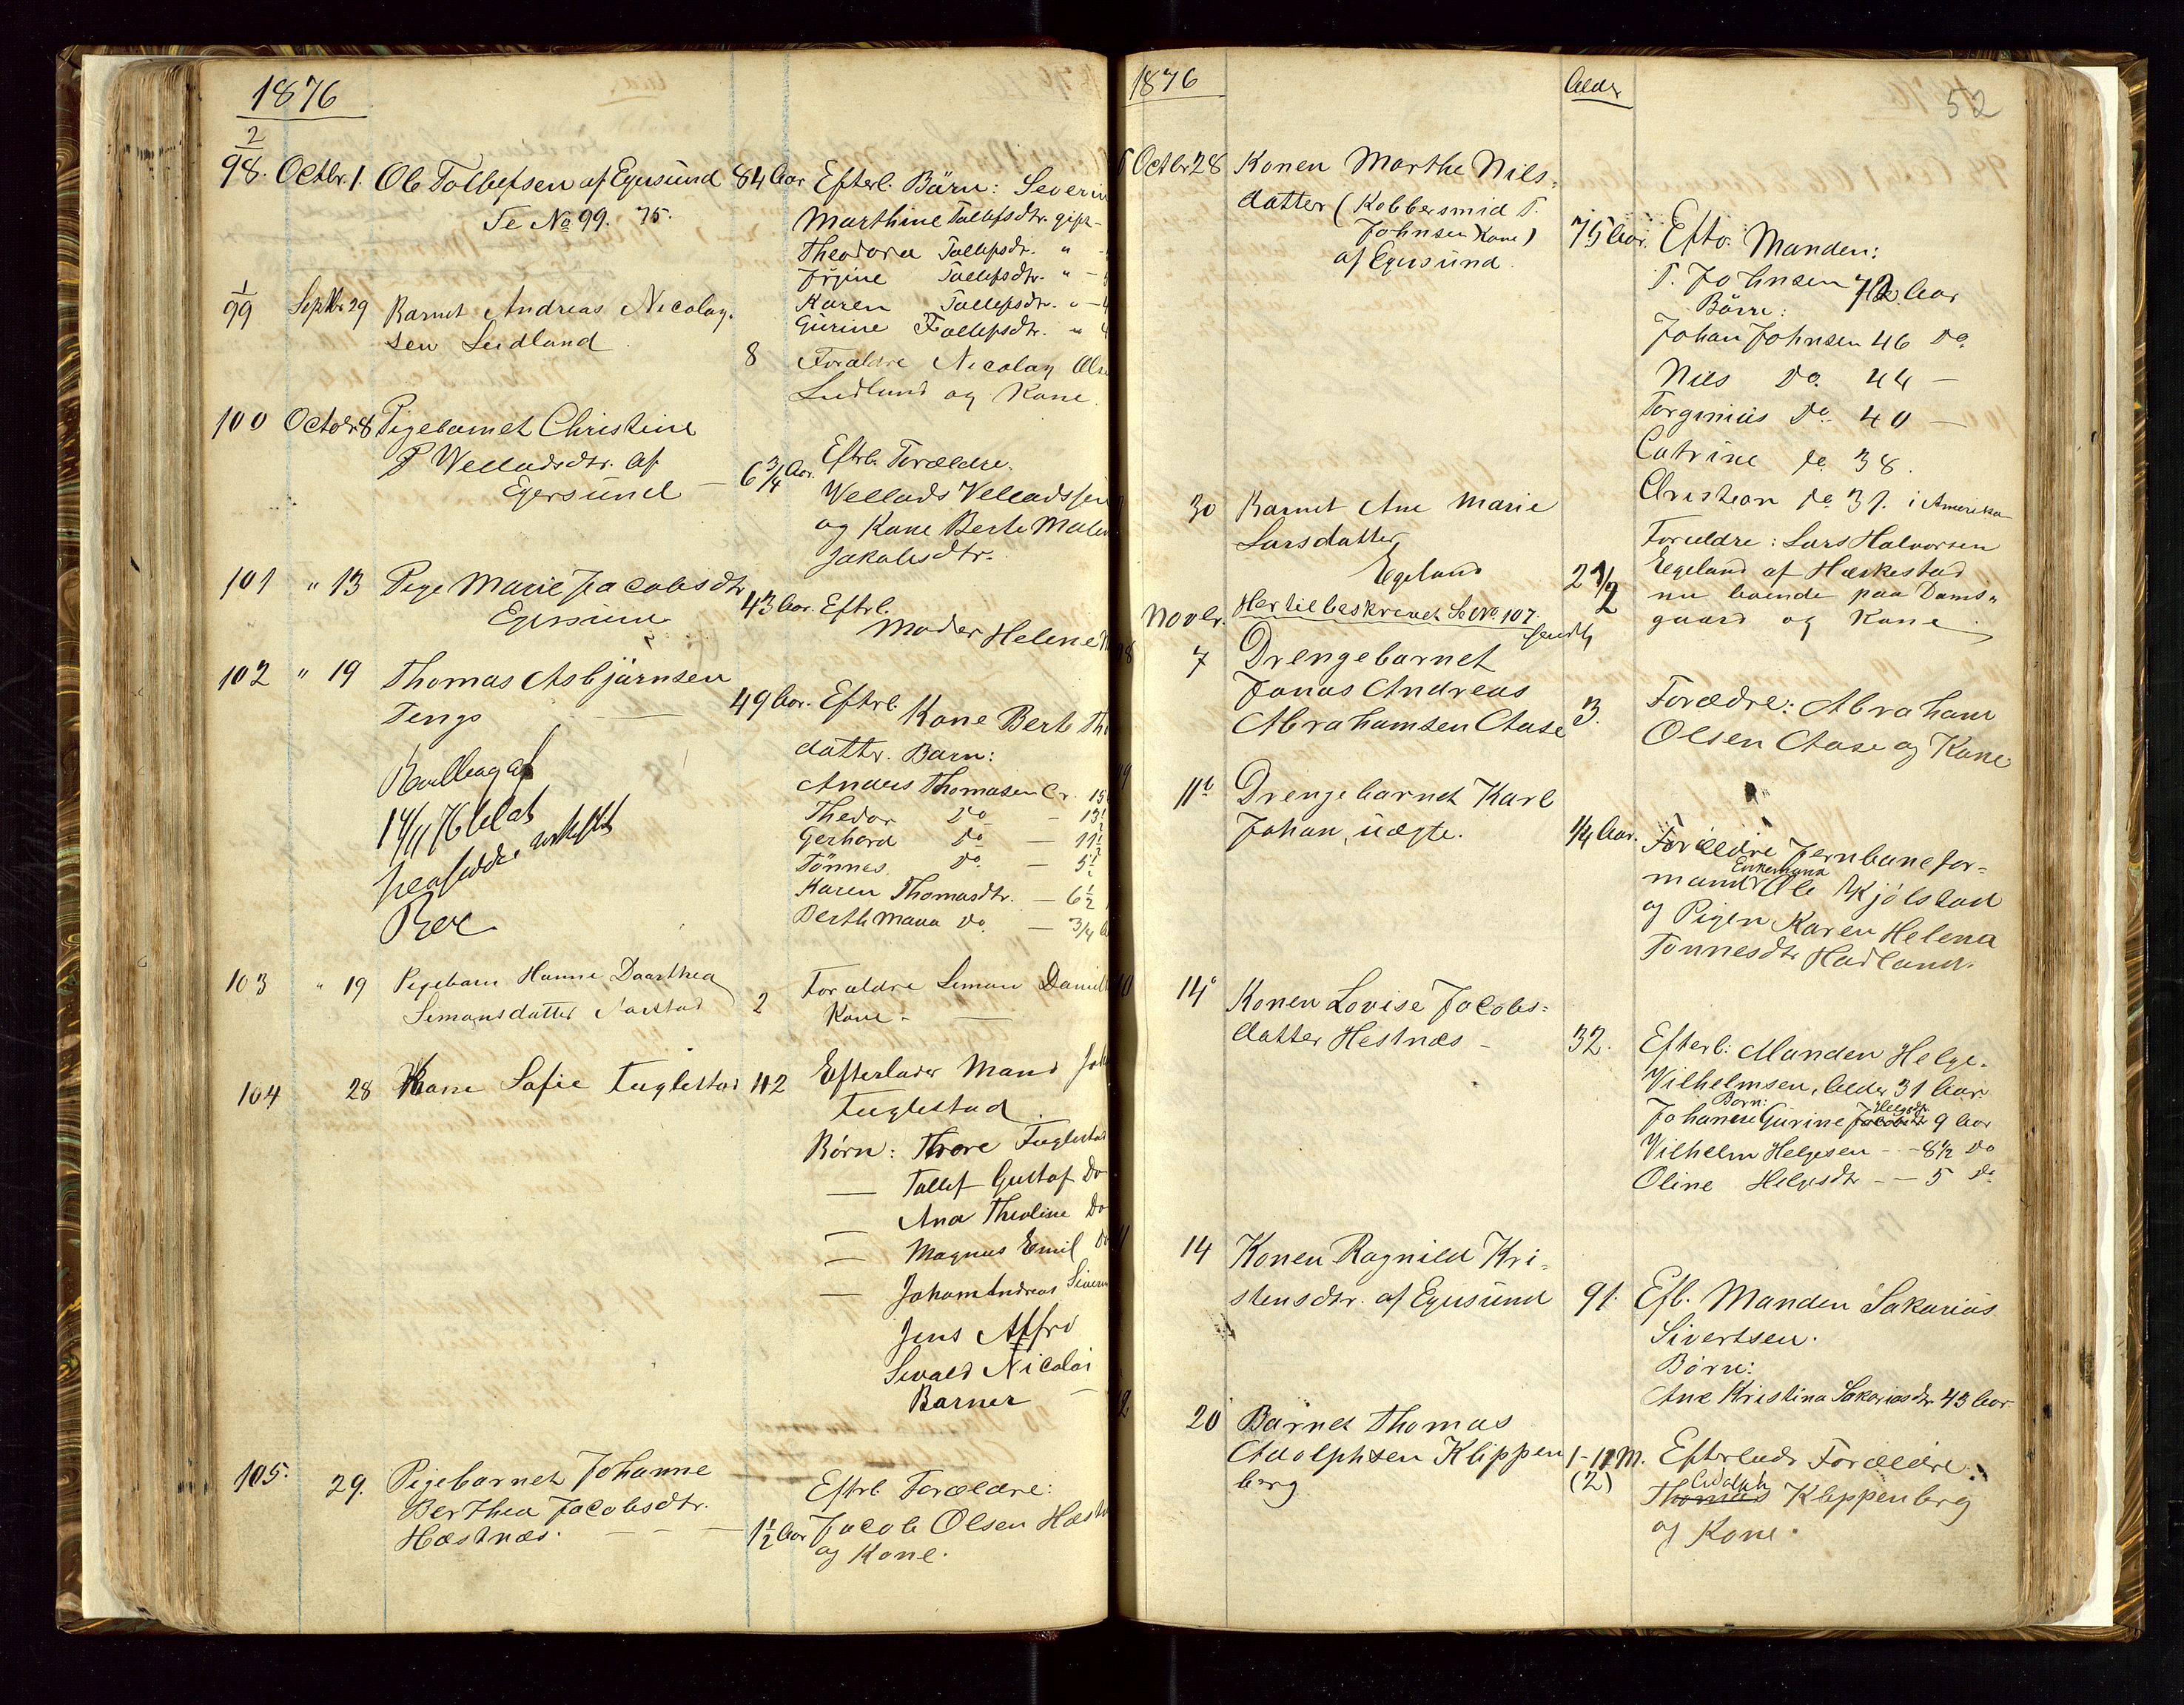 1876
2
98. Octbr. 1. Ole Tollefsen af Egersund 84 Aar Efterl. Börn: Severin
Se No 99. 75.
Marthine Tollefsdtr. gift-
Theodora Tollefsdtr. "
Jrgine Tollefsdtr. "
Karen Tollefsdtr. "
Gurine Tollefsdtr. "
1
99 Septbr. 29 Barnet Andreas Nicolay-
sen Lædland
8 Forældre Nicolay Olse
Lædland og Kone
100 Octobr 8 Pigebarnet Christine
P Welladsdtr. af
Egersund
6 3/4 Aar. Eftrl. Forældre.
Wellads Velladssen
og Kone Berte Malen
Jakobsdtr.
101 " 13 Pige Marie Jacobsdtr
Egersund
43 Aar. Eftrl.
Moder Helene
102 " 19 Thomas Asbjörnsen
Tengs
49 Aar. Eftrl. Kone Berte Th
datter. Barn:
Anders Thomasen Er. 15
Thedor Do - 13
Gerhard Do - 11½
Tönnes Do. - 5½
Karen Thomasdtr. - 6½
Berth Maria Do. - 3/4
14/11 76
103 " 19 Pigebarn Hanne Daarthea
Simonsdatter
2 Forældre Simon Daniels
Kone -
104 28 Kone Sofie Fuglestad 42 Efterlader Mand Joh
Fuglestad
Börn: Thore Fuglestad
— Tallef Gustaf Do
— Ana Theoline Do
— Magnus Emil Do
— Johan Andreas Siver
Jens Alfrd
Sivald Nicolai
Barner
105. 29. Pigebarnet Johanne
Berthea Jacobsdtr.
Hæstnæs.
1½ Aar Eftrl. Forældre:
Jacob Olsen Hæst
og Kone.
1876
Alder
52
Octbr 28 Konen Marthe Niels-
datter (Kobbersmid T.
Johnsen Kone)
af Egersund.
75 Aar. Eftr. Manden:
T. Johnsen 72 Aar
Börn:
Johan Johnsen 46 Do.
Niels Do. 44 —
Torginius Do. 40 —
Catrine Do. 38.
Christian Do 37. i Amerika
30 Barnet Ane Marie
Larsdatter
Egeland
2 1/2
Forældre: Lars Halvorsen
Egeland af Hæskestad
nu boende paa Dams-
gaard og Kone.
Novbr. Hertil beskrevet Se No. 107.
sendt
7 Drengebarnet
Jonas Andreas
Abrahamsen Aase
3. Forældre: Abraham
Olsen Aase og Kone
11te Drengebarnet Karl
Johan, uægte.
1/4 Aar. Forældre Jernbanefor-
Enkemand
mand Ole Kjölstad
og Pigen Karen Helena
Tonnesdtr Hadland.
14 Konen Lovise Jacobs-
datter Hestnæs -
32. Efterl: Manden Helge.
Vilhelmsen, Alder 31 Aar
Börn: Helgesdtr
Johanne Gurine Jacobsdtr 9 Aar
Vilhelm Helgesen - - 8½ Do
Oline Helgesdtr - - 5 Do
14 Konen Ragnild Kri-
stensdtr. af Egersund
91. Eftl. Manden Sakarias
Sivertsen.
Börn:
Ane Kristina Sakariasdtr 43 Aar
20 Barnet Thomas
Adolphsen Klippen
berg
1-11 M.
(2)
Efterlader Forældre:
Adolph
Thomas Klippenberg
og Kone.